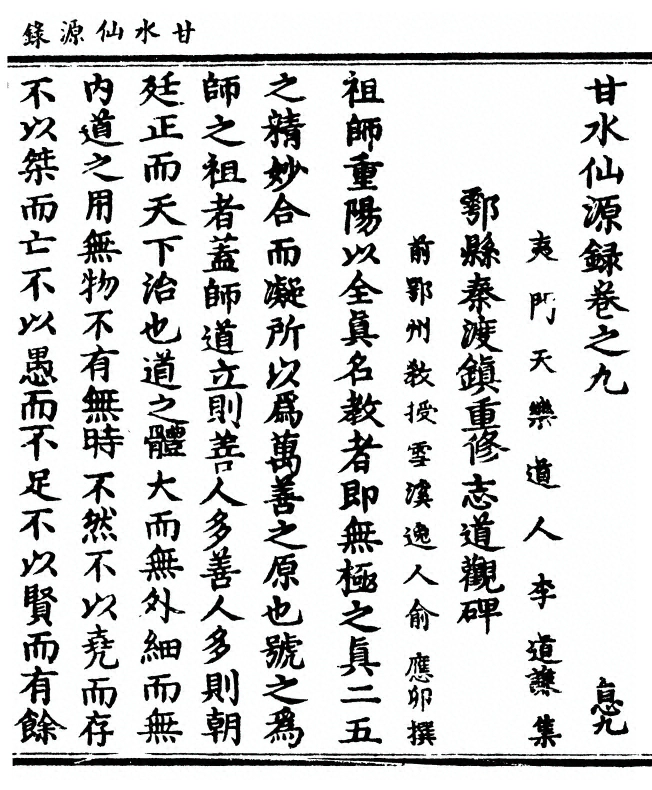 甘水仙源錄
甘水仙源録卷之九
息九
夷門天樂道人李道謙集
鄠縣秦渡鎮重修志道觀碑
前鄂州教授雪溪逸人俞應卯撰
祖師重陽以全眞名教者即無極之眞二五
之精妙合而凝所以爲萬善之原也號之爲
師之祖者蓋師道立則善人多善人多則朝
廷正而天下治也道之體大而無外細而無
内道之用無物不有無時不然不以堯而存
不以桀而亡不以愚而不足不以賢而有餘